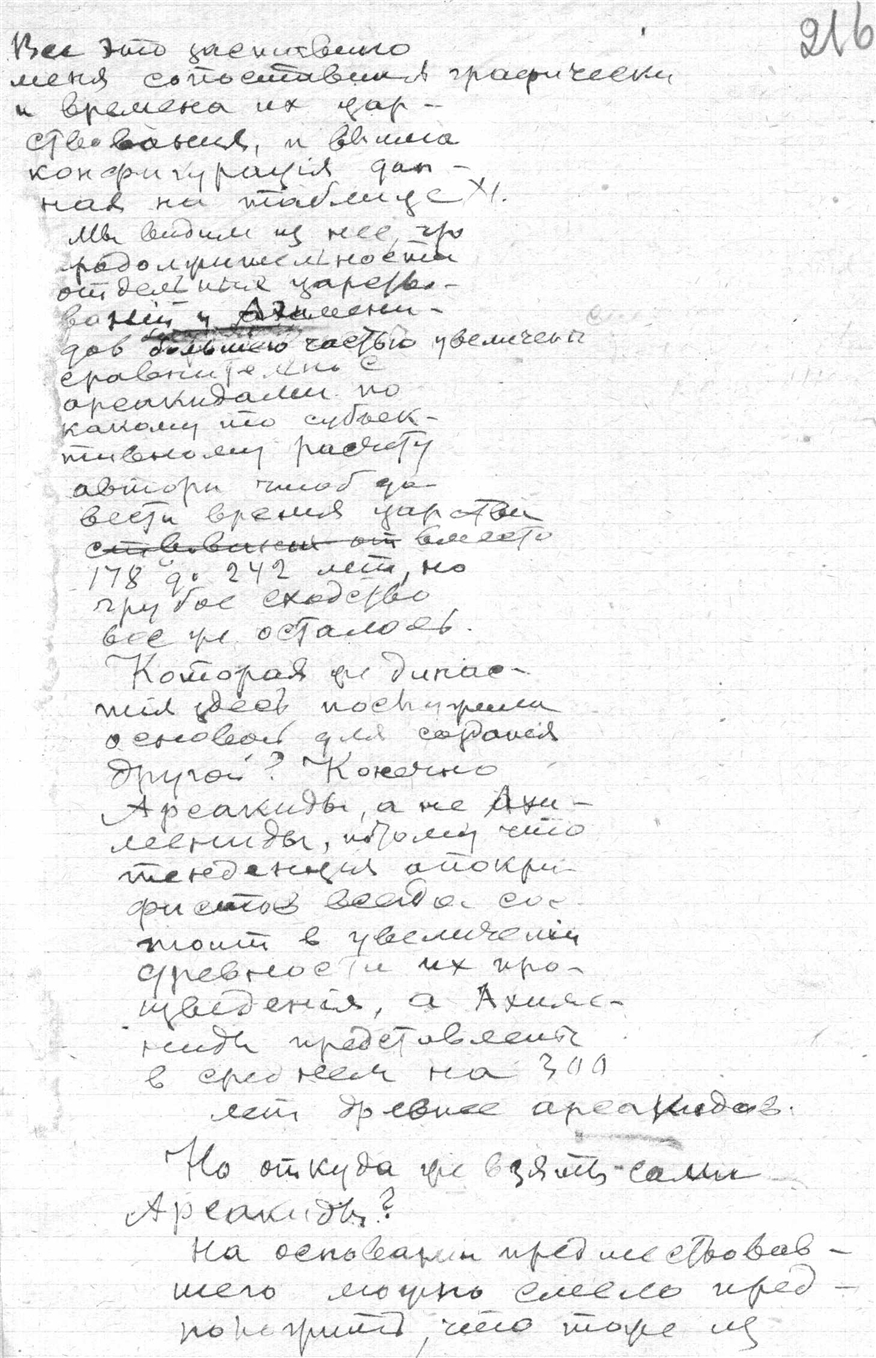 216
Все это заставило
меня сопоставить графически
и времена их цар-
ствования, и вышла
конфигурація дан-
ная на таблице XI.
Мы видим из нее, что
родолжительности
отдельных царство-
ваній у Ахемени-
дов большею частью увеличены
сравнительно с
арсакидами по
какому то субъек-
тивному расчету
автора чтоб до-
вести время царства
ствования от вместо
178 до 242 лет, но
грубое сходство
все же осталось.
Которая же динас-
тія здесь послужила
основой для созданія
другой? Конечно
Арсакиды, а не Ахе-
мениды, потому что
тенденція апокри-
фистов всегда сос-
тоит в увеличеніи
древности их про-
изведенія, а Ахеме-
ниды представлены
в среднем на 300
лет древнее арсакидов.
Но откуда же взяты сами
Арсакиды?
На основании предшествовав-
шего можно смело пред-
положить, что тоже из